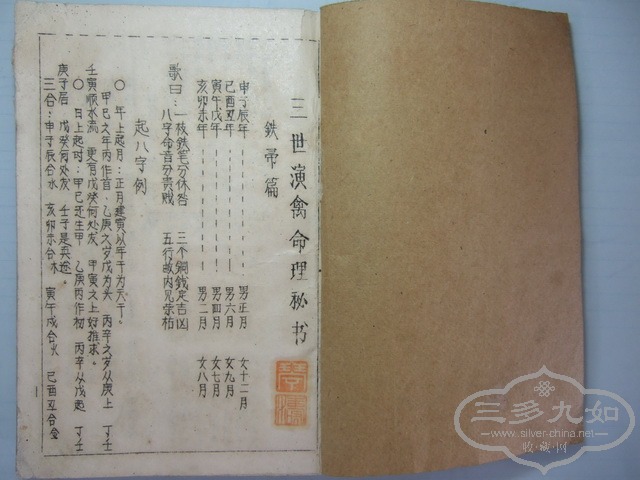 三世演禽命理秘书
鉄帚篇
申子辰年 男正月 女十二月
巳酉丑年 男六月 女九月
寅午戌年 男四月 女七月
亥卯未年 男二月 女八月
歌曰：一枝鉄笔分休咎 三个铜钱定吉凶
八字命音分贵贱 五行
起八字例
○年上起月：正月建寅以年干为天干。
甲己之年丙作首 乙庚之岁戊为头 丙辛之岁从庚上 丁壬
壬寅顺水流 更有戊癸何处发 甲寅之上好推求。
○日上起时：甲己还生甲 乙庚丙作初 丙辛从戊起 丁壬
庚子居 戊癸何处发 壬子是真途
三合：申子辰合水 亥卯未合木 寅午戌合火 巳酉丑合金
三多九如
www.silver-china.net
收·藏·网